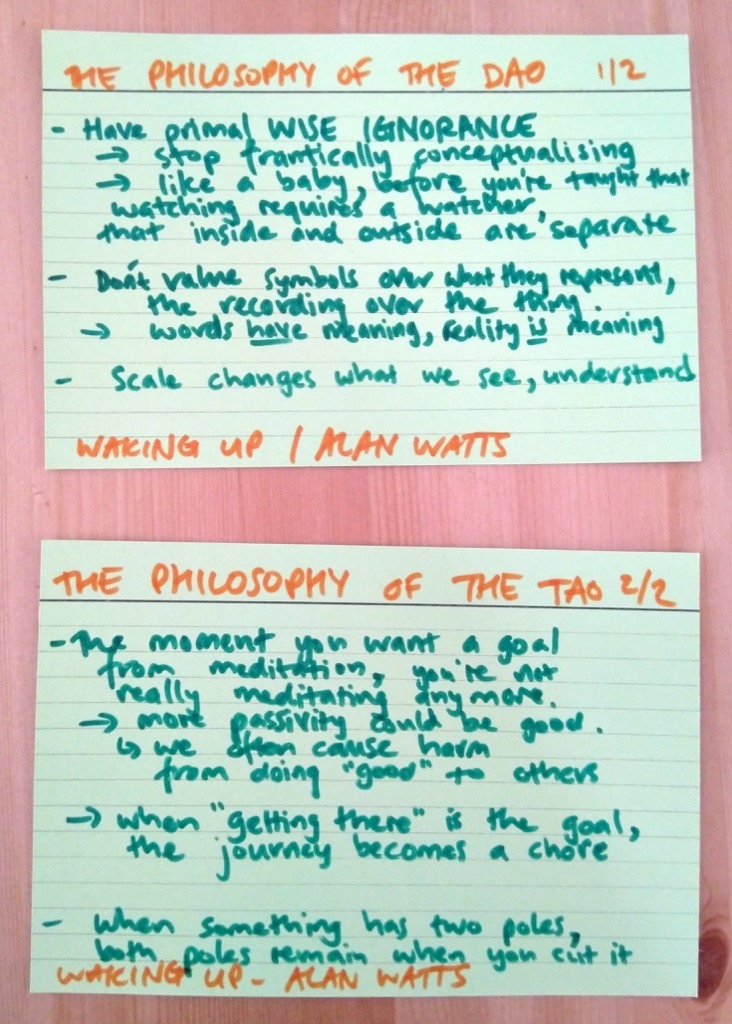 THE PHILOSOPHY OF THE DAO 1/2
- Have primal WISE IGNORANCE
→ stop frantically conceptualising
→ like a baby, before you're taught that
watching requires a watcher,
that inside and outside are separate
- Don't value symbols over what they represent,
the recording over the thing.
→ words have meaning, reality is meaning
- Scale changes what we see, understand
WAKING UP / ALAN WATTS
THE PHILOSOPHY OF THE TAO 2/2
- The moment you want a goal
from meditation, you're not
really meditating anymore.
→ more passivity could be good.
↳ we often cause harm
from doing "good" to others
→ when "getting there" is the goal,
the journey becomes a chore
- When something has two poles,
both poles remain when you cut it
WAKING UP - ALAN WATTS